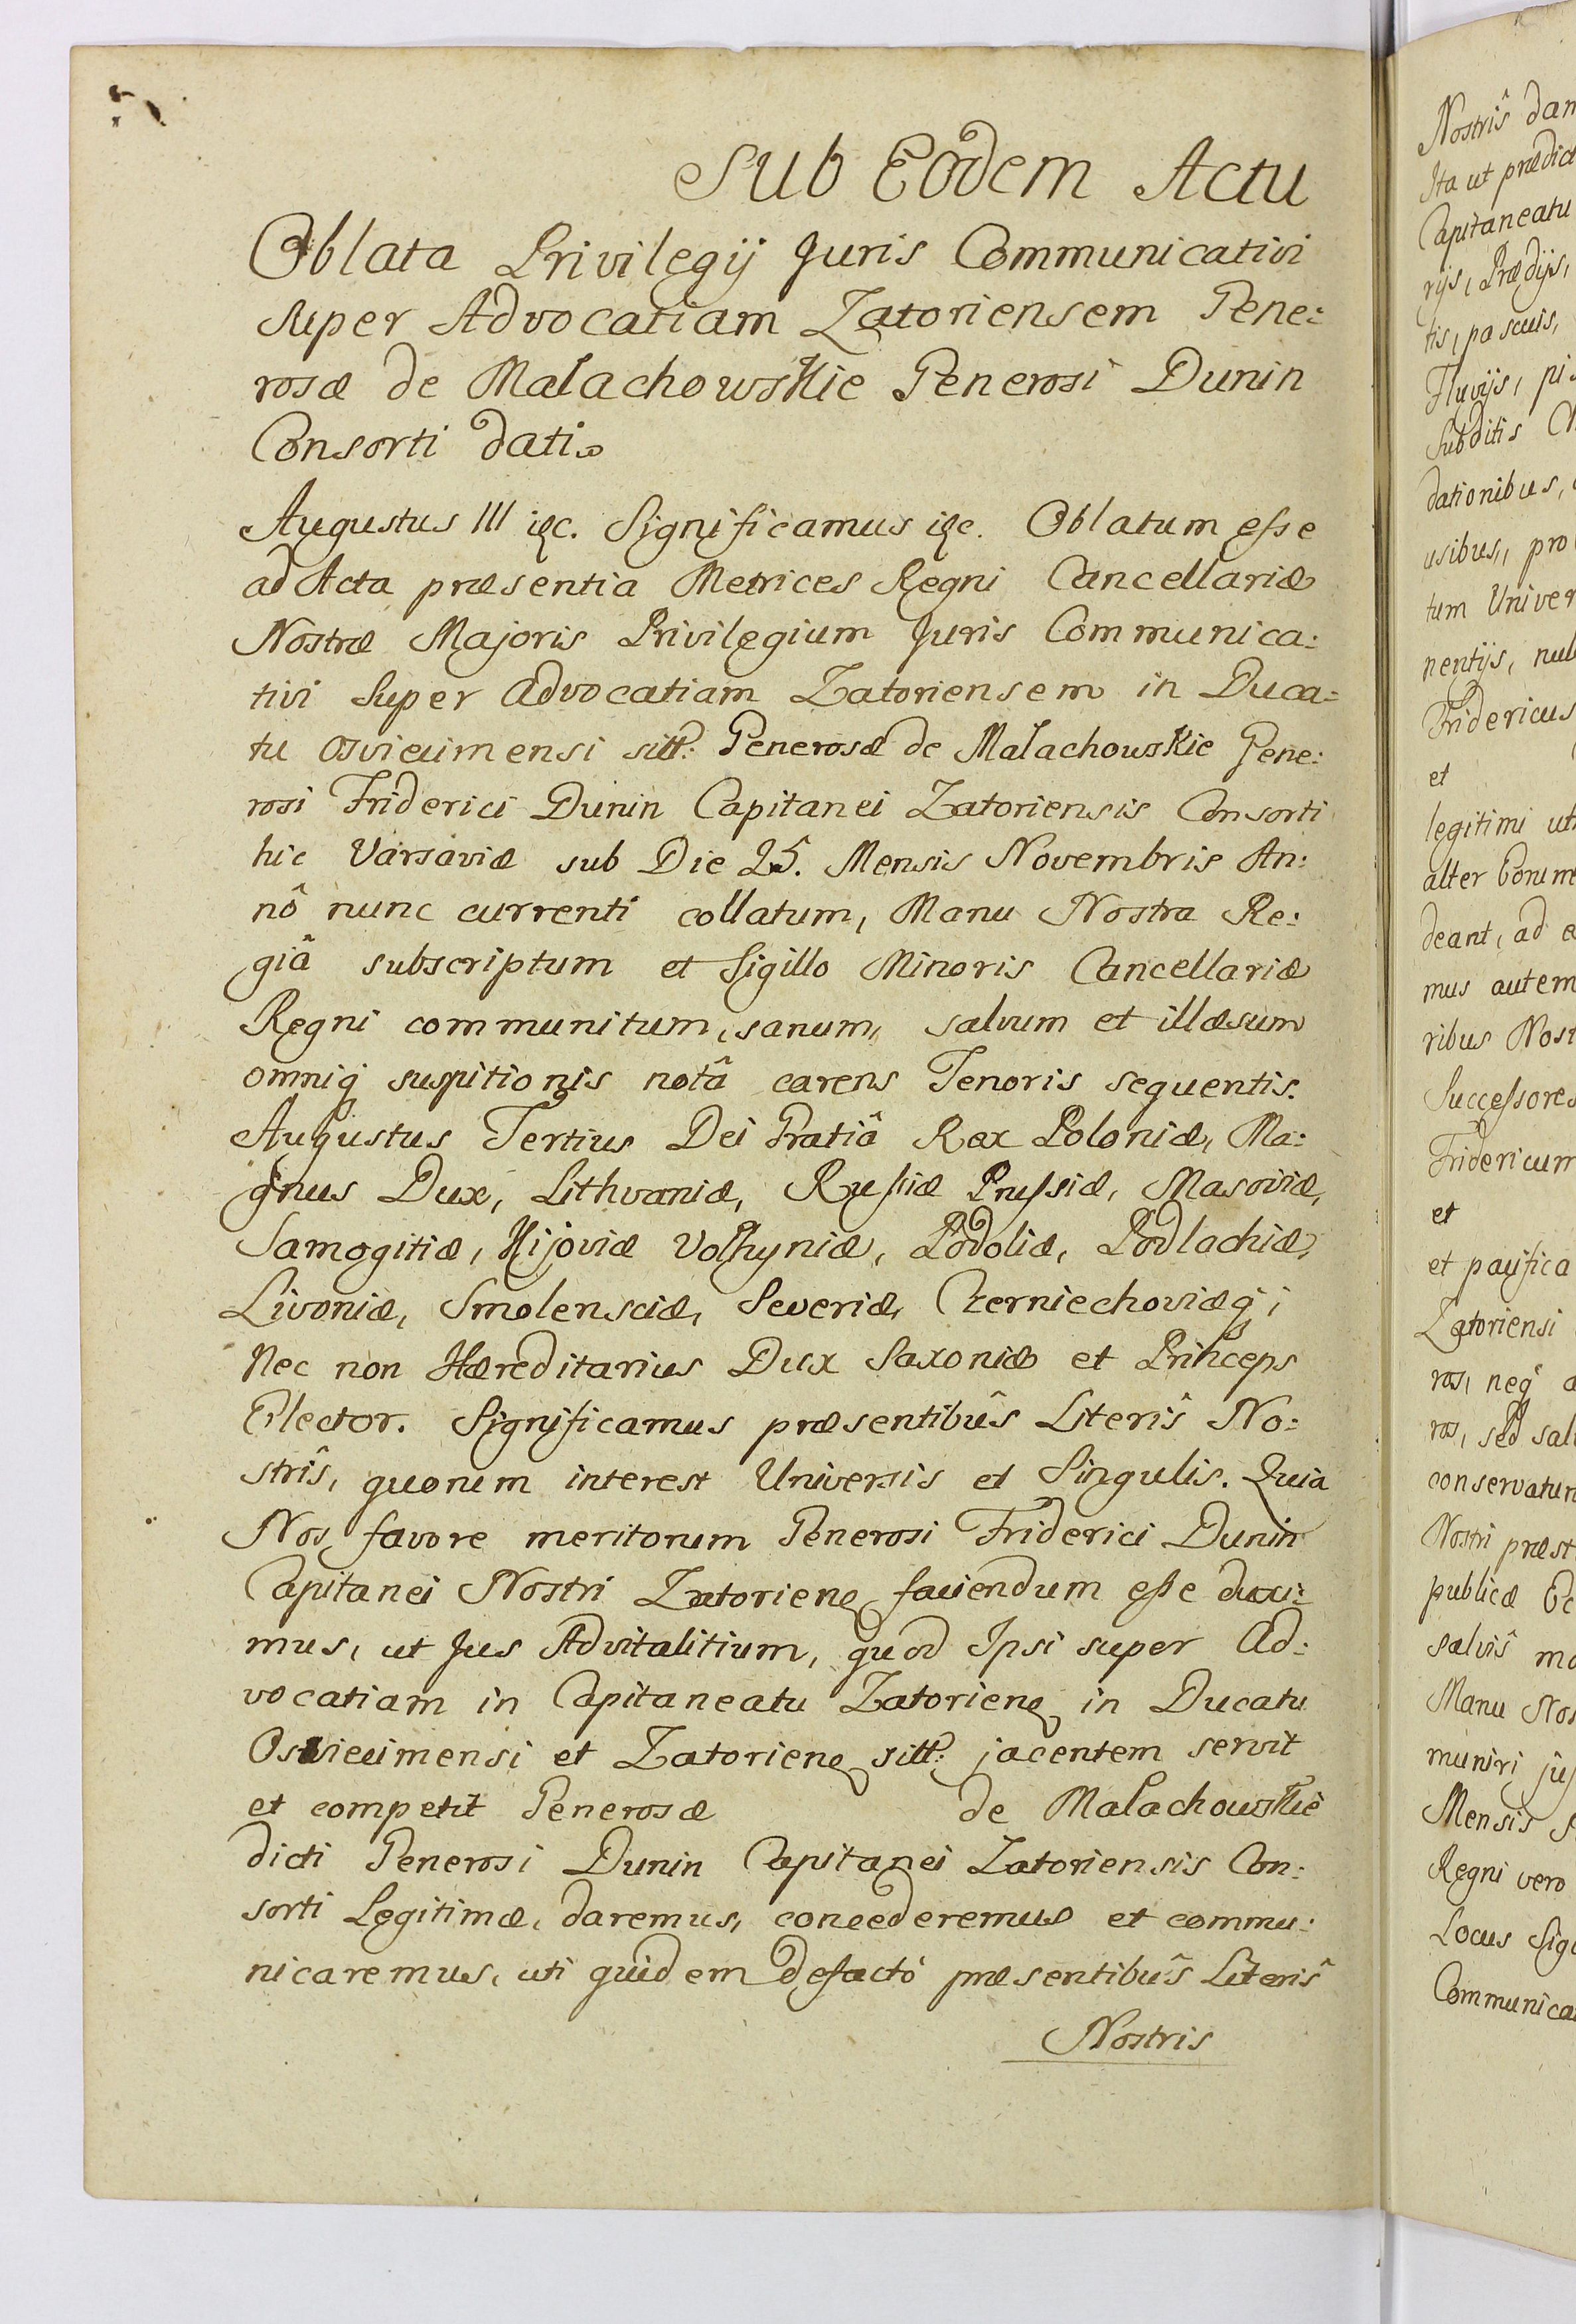 Sub Eodem Actu
Oblata Privilegij Juris Communicativi
super Advocatiam Zatoriensem Gene:
rosæ de Małachowskie Generosi Dunin
Consorti dati.
Augustus III etc. Significamus etc. Oblatum esse
ad Acta præsentia Metrices Regni Cancellariæ
Nostræ Majoris Privilegium Juris Communica:
tivi super Advocatiam Zatoriensem in Duca=
tu Osviecimensi sitt: Generosæ de Małachowskie Gene:
rosi Friderici Dunin Capitanei Zatoriensis Consorti
hic Varsaviæ sub Die 25. Mensis Novembris An:
nô nunc currenti collatum, Manu Nostra Re:
giâ subscriptum et Sigillo Minoris Cancellariæ
Regni communitum, sanum, salvum et illæsum
omniq suspitionis notâ carens Tenoris sequentis.
Augustus Tertius Dei Gratiâ Rex Poloniæ, Ma:
gnus Dux, Lithvaniæ, Russiæ Prussiæ, Masoviæ,
Samogitiæ, Kijoviæ Volhyniæ, Podoliæ, Podlachiæ,
Livoniæ, Smolensciæ, Severiæ, Czerniechoviæq;
Nec non Hæreditarius Dux Saxoniæ et Princeps
Elector. Significamus præsentibûs Literîs No:
strîs, quorum interest Universis et Singulis. Quia
Nos favore meritorum Generosi Friderici Dunin
Capitanei Nostri Zatorien faciendum esse duxi:
mus, ut Jus Advitalitium, quod Ipsi super Ad:
vocatiam in Capitaneatu Zatorien in Ducatu
Osviecimensi et Zatorien sitt: jacentem servit
et competit Generosæ de Małachowskie
dicti Generosi Dunin Capitanei Zatoriensis Con:
sorti Legitimæ, daremus, concederemus et commu:
nicaremus, uti quidem defactó præsentibûs Literîs
Nostris
Nostrîs dan
Ita ut prædict
Capitaneatu
rijs, Prædijs,
tis, pascuis,
Fluvijs, pi
Subditis
dationibus,
usibus, pro
tum Univer
nentijs, nul
Fridericus
et
legitimi ut
alter Eorum
deant, ad e
mus autem
ribus Nost
Successores
Fridericum
et
et pacifica
Zatoriensi
ros, neq a
ros, sed sal
conservatur
Nostri præst
publicæ Ec
salvîs mo
Manu Nos
muniri jus
Mensis
Regni vero
Locus Sigi
Communica